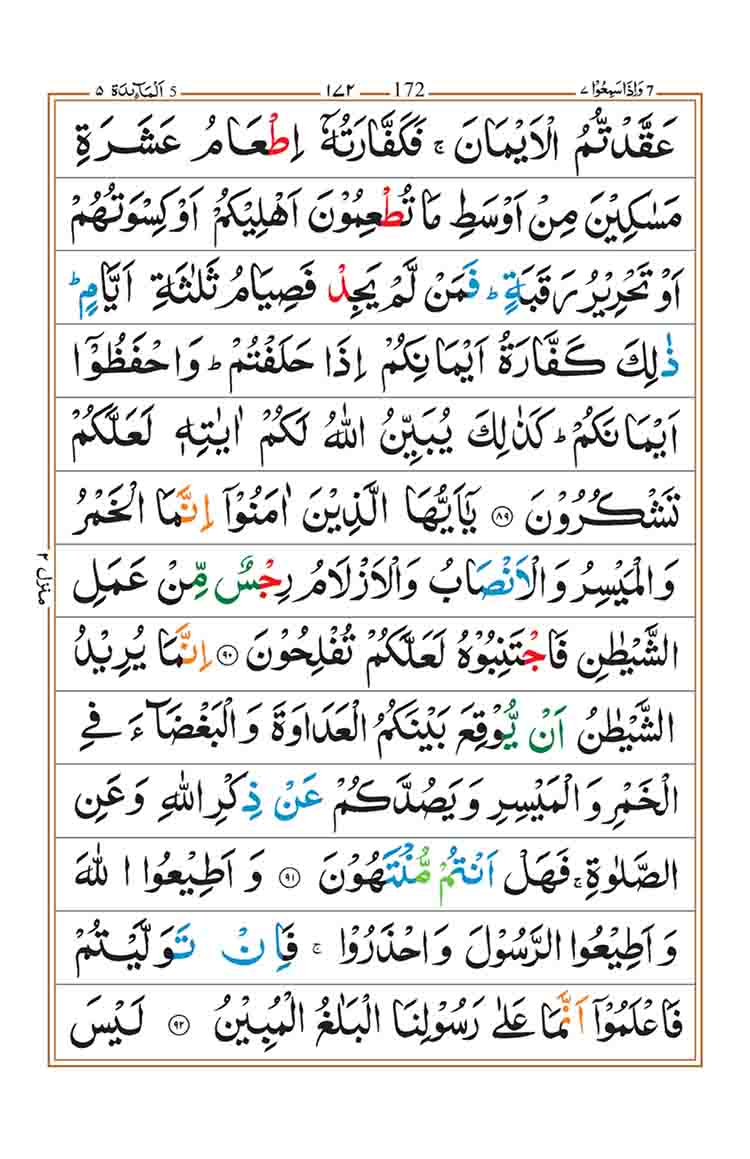 7 وَاِذَاسَمِعُوْا ٧ 172 ١٧٢ 5 اَلْمَآئِدَة ٥
عَقَّدْتُّمُ الْاَيْمَانَ ۚ فَكَفَّارَتُهٗۤ اِطْعَامُ عَشَرَةِ
مَسٰكِيْنَ مِنْ اَوْسَطِ مَا تُطْعِمُوْنَ اَهْلِيْكُمْ اَوْ كِسْوَتُهُمْ
اَوْ تَحْرِيْرُ رَقَبَةٍ ؕ فَمَنْ لَّمْ يَجِدْ فَصِيَامُ ثَلٰثَةِ اَيَّامٍ ؕ
ذٰلِكَ كَفَّارَةُ اَيْمَانِكُمْ اِذَا حَلَفْتُمْ ؕ وَاحْفَظُوْۤا
اَيْمَانَكُمْ ؕ كَذٰلِكَ يُبَيِّنُ اللّٰهُ لَكُمْ اٰيٰتِهٖ لَعَلَّكُمْ
تَشْكُرُوْنَ ۝٨٩ يٰۤاَيُّهَا الَّذِيْنَ اٰمَنُوْۤا اِنَّمَا الْخَمْرُ
وَالْمَيْسِرُ وَالْاَنْصَابُ وَالْاَزْلَامُ رِجْسٌ مِّنْ عَمَلِ
الشَّيْطٰنِ فَاجْتَنِبُوْهُ لَعَلَّكُمْ تُفْلِحُوْنَ ۝٩٠ اِنَّمَا يُرِيْدُ
الشَّيْطٰنُ اَنْ يُّوْقِعَ بَيْنَكُمُ الْعَدَاوَةَ وَالْبَغْضَآءَ فِي
الْخَمْرِ وَالْمَيْسِرِ وَيَصُدَّكُمْ عَنْ ذِكْرِ اللّٰهِ وَعَنِ
الصَّلٰوةِ ۚ فَهَلْ اَنْتُمْ مُّنْتَهُوْنَ ۝٩١ وَاَطِيْعُوا اللّٰهَ
وَاَطِيْعُوا الرَّسُوْلَ وَاحْذَرُوْا ۚ فَاِنْ تَوَلَّيْتُمْ
فَاعْلَمُوْۤا اَنَّمَا عَلٰى رَسُوْلِنَا الْبَلٰغُ الْمُبِيْنُ ۝٩٢ لَيْسَ
منزل ٢